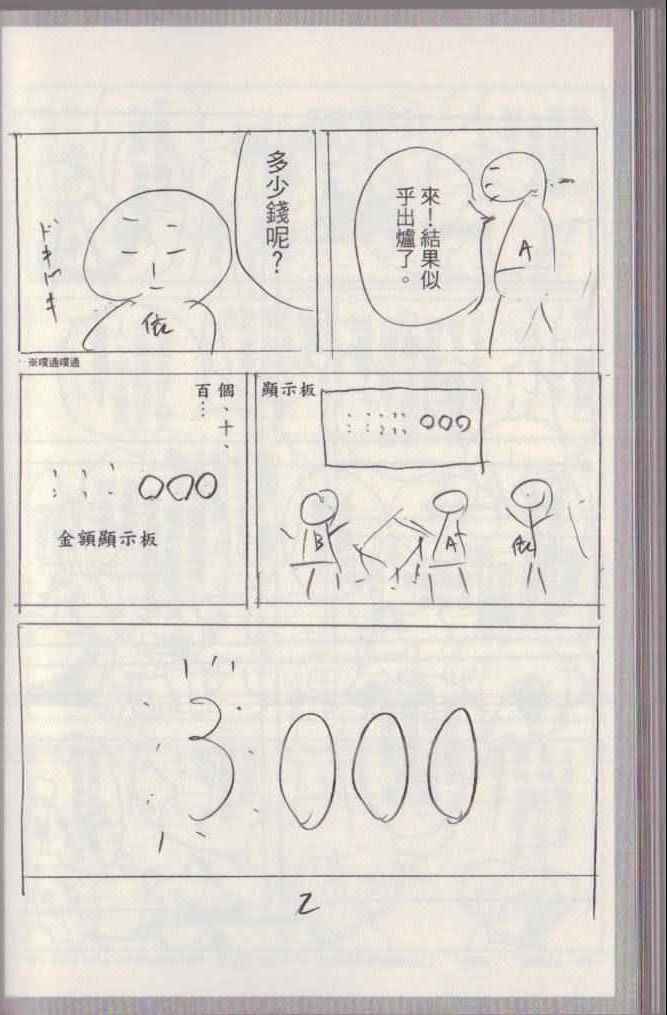 來！結果似
乎出爐了。
A
多少錢呢？
ドキドキ
依
※噗通噗通
顯示板
000
B
A
依
個、十、
百…
000
金額顯示板
3000
2